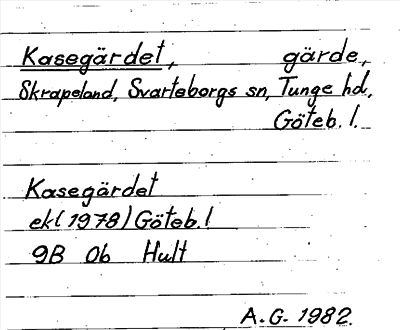 Kasegärdet, gärde,
Skrapeland, Svarteborgs sn, Tunge hd,
Göteb. l.
Kasegärdet
ekl (1978) Göteb. l
9B 0b Hult
A.G. 1982.